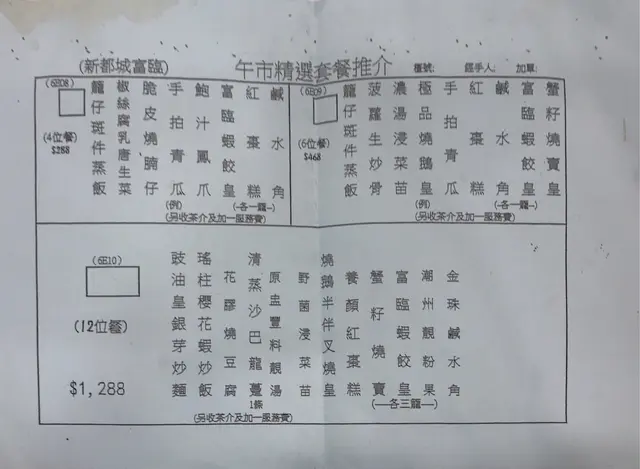 (新都城富臨)
午市精選套餐推介
檯號:
經手人:
加單:
(6E08)
(4位餐)
$288
鹹水角
紅棗糕
富臨蝦餃皇
(各一籠)
鮑汁鳳爪
手拍青瓜
(例)
脆皮燒腩仔
椒絲腐乳唐生菜
龍仔斑件蒸飯
(另收茶介及加一服務費)
(6E09)
(6位餐)
$468
蟹籽燒賣皇
富臨蝦餃皇
鹹水角
紅棗糕
(各一籠)
手拍青瓜
(例)
極品燒鵝皇
濃湯浸菜苗
菠蘿生炒骨
龍仔斑件蒸飯
(另收茶介及加一服務費)
(6E10)
(12位餐)
$1,288
金珠鹹水角
潮州靚粉果
富臨蝦餃皇
蟹籽燒賣
(各三籠)
養顏紅棗糕
燒鵝半伴叉燒皇
野菌浸菜苗
原盅豐料靚湯
清蒸沙巴龍躉
1條
花膠燒豆腐
瑤柱櫻花蝦炒飯
豉油皇銀芽炒麵
(另收茶介及加一服務費)